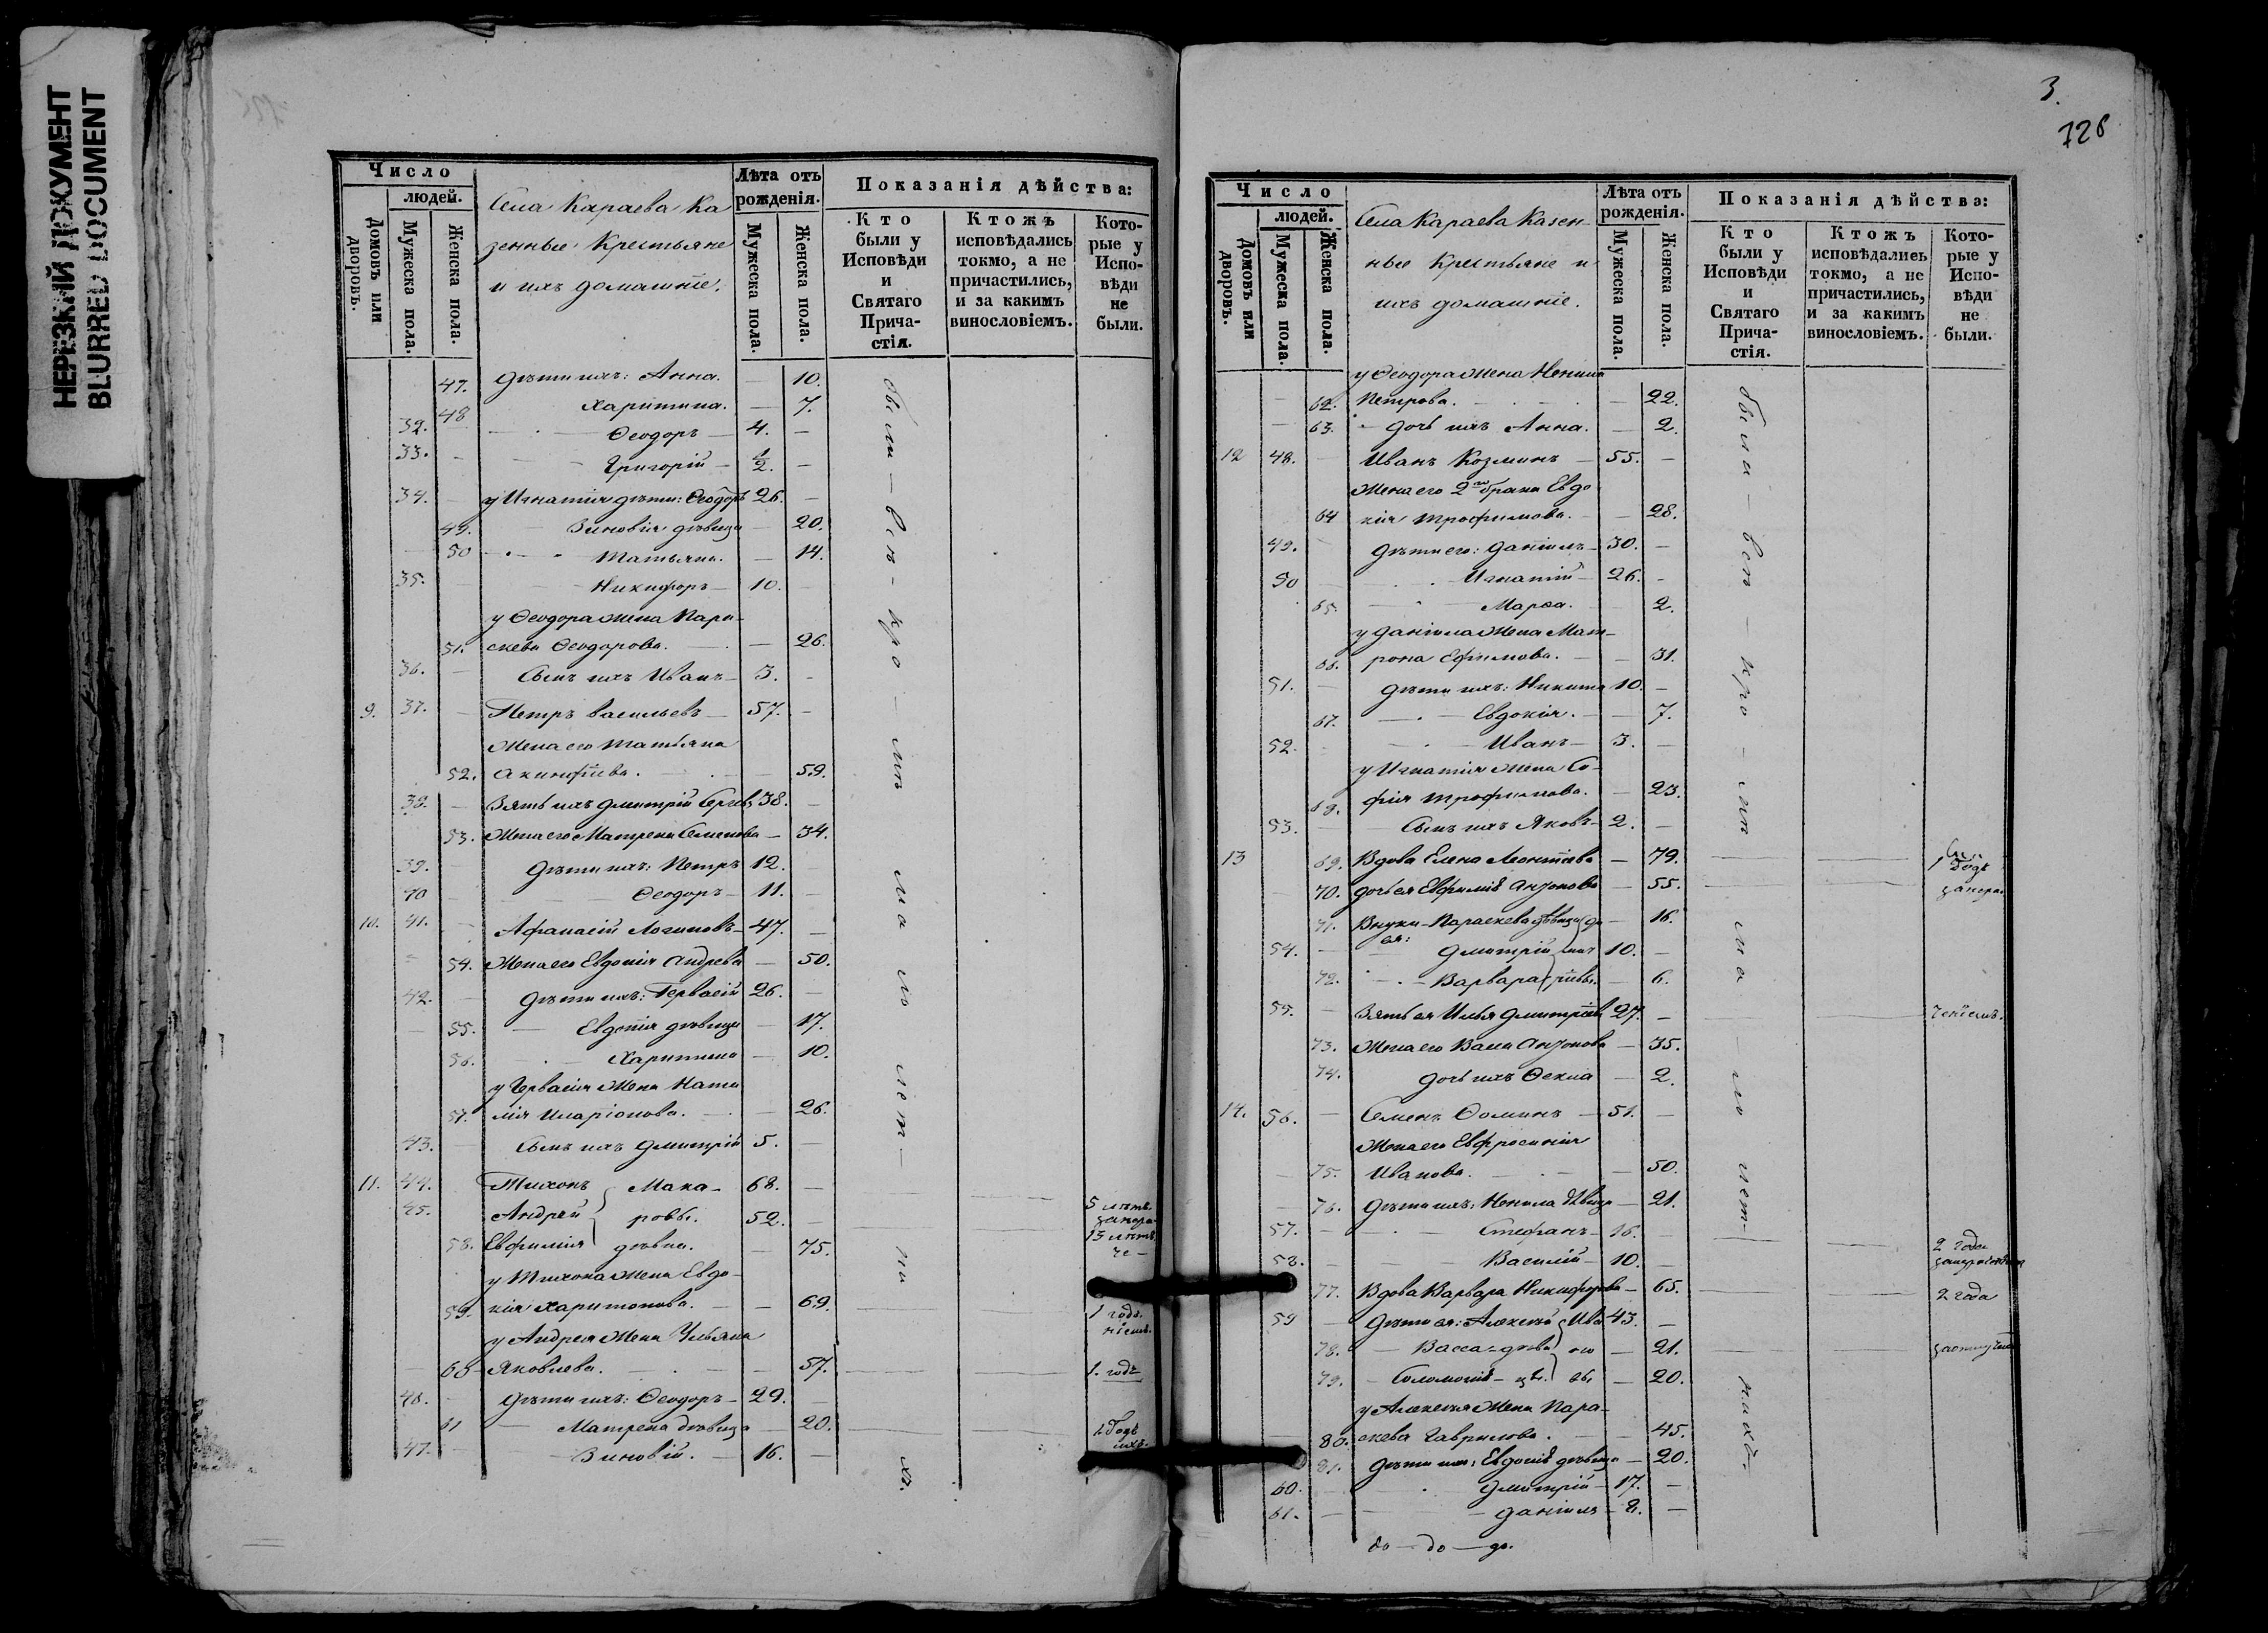 НЕРЕЗКИЙ ДОКУМЕНТ
BLURRED DOCUMENT
Число
людей.
Домовъ или дворовъ.
Мужеска пола.
Женска пола.
Села Караева Ка
зенные Крестьяне
и ихъ домашніе.
Лѣта отъ рожденія.
Мужеска пола.
Женска пола.
Показанія дѣйства:
Кто были у Исповѣди и Святаго Прича- стія.
Ктожъ исповѣдались токмо, а не причастились, и за какимъ винословіемъ.
Кото- рые у Испо- вѣди не были.
47. дѣти ихъ: Анна. — 10.
48 Харитина. — 7.
32. Ѳеодоръ — 4. —
33. — Григорій — 1/2. —
34. — у Игнатія дѣти: Ѳеодоръ 26. —
49. Зиновія дѣвица — 20.
50 Татьяна. — 14.
35. Никифоръ — 10.
у Ѳеодора жена Пара-
51. скева Ѳеодорова. — 26.
36. — Сынъ ихъ Иванъ — 3. —
9. 37. — Петръ Васильевъ — 57. —
Жена его Татьяна
52. Акинфіева. — 59.
38. — Зять ихъ Дмитрій Сергѣевъ 38. —
53. Жена его Матрена Семенова — 34.
39. — дѣти ихъ: Петръ 12.
40 Ѳеодоръ — 11. —
10. 41. — Афанасій Логиновъ — 47. —
54. Жена его Евдокія Андреева — 50.
42. — дѣти ихъ: Гервасій 26. —
55. — Евдокія дѣвица — 17.
56. Харитина — 10.
у Гервасія Жена Ната
57. лія Иларіонова. — 26.
43. — Сынъ ихъ Дмитрій 5. —
11. 44. Тихонъ Мака- 68. —
45. Андрей ровы. 52. —
5 лѣтъ
58. Евфимія дѣвка. — 75.
15 лѣтъ
у Тихона жена Евдо-
59. кія Харитонова. — 69.
1 годъ
у Андрея жена Ульяна
60 Яковлева. — 57. 1. годъ
46. — дѣти ихъ: Ѳеодоръ — 29. —
61 — Матрена дѣвица — 20. 1 годъ
47. — Зиновій. — 16. —
3.
728
Число
людей.
Домовъ или дворовъ.
Мужеска пола.
Женска пола.
Села Караева Казен-
ные Крестьяне и
ихъ домашніе.
Лѣта отъ рожденія.
Мужеска пола.
Женска пола.
Показанія дѣйства:
Кто были у Исповѣди и Святаго Прича- стія.
Ктожъ исповѣдались токмо, а не причастились, и за какимъ винословіемъ.
Кото- рые у Испо- вѣди не были.
у Ѳеодора жена Ненила
62. Петрова. — 22.
63. дочь ихъ Анна. — 2.
12 48. — Иванъ Козминъ — 55. —
Жена его 2го брака Евдо
64 кія Трофимова. — 28.
49. — дѣти его: Даніилъ — 30. —
50 Игнатій — 26. —
65. Марѳа. — 2.
у Даніила жена Мат-
66. рона Ефимова. — 31.
51. — дѣти ихъ: Никита 10. —
67. Евдокія. — 7.
52. — Иванъ — 3. —
у Игнатія жена Со-
68. фія Трофимова. — 23.
53. — Сынъ ихъ Яковъ — 2. —
13 69. Вдова Елена Леонтіева — 79. 1 годъ
70. дочь ея Евфимія Антонова — 55.
71. Внуки Параскева дѣвица — 16.
ея:
54. — Дмитрій 10. —
72. Варвара — 6.
55. — Зять ея Илья Дмитріевъ 27. —
73. Жена его Васса Антонова — 35.
74. дочь ихъ Ѳекла — 2.
14. 56. — Семенъ Ѳоминъ — 51. —
Жена его Евфросинія
75. Иванова. — 50.
76. дѣти ихъ: Ненила дѣвица — 21.
57. — Стефанъ — 16. —
2 года
58. Василій — 10. —
77. Вдова Варвара Никифорова — 65. 2 года
59 — дѣти ея: Алексѣй Ива 43. —
78. — Васса 21.
79. — Соломонія 20.
у Алексѣя жена Пара-
80. скева Гаврилова. — 45.
81. дѣти ихъ: Евдокія дѣвица — 20.
60. Дмитрій — 17. —
61. — Даніилъ — 8. —
до — до — до.